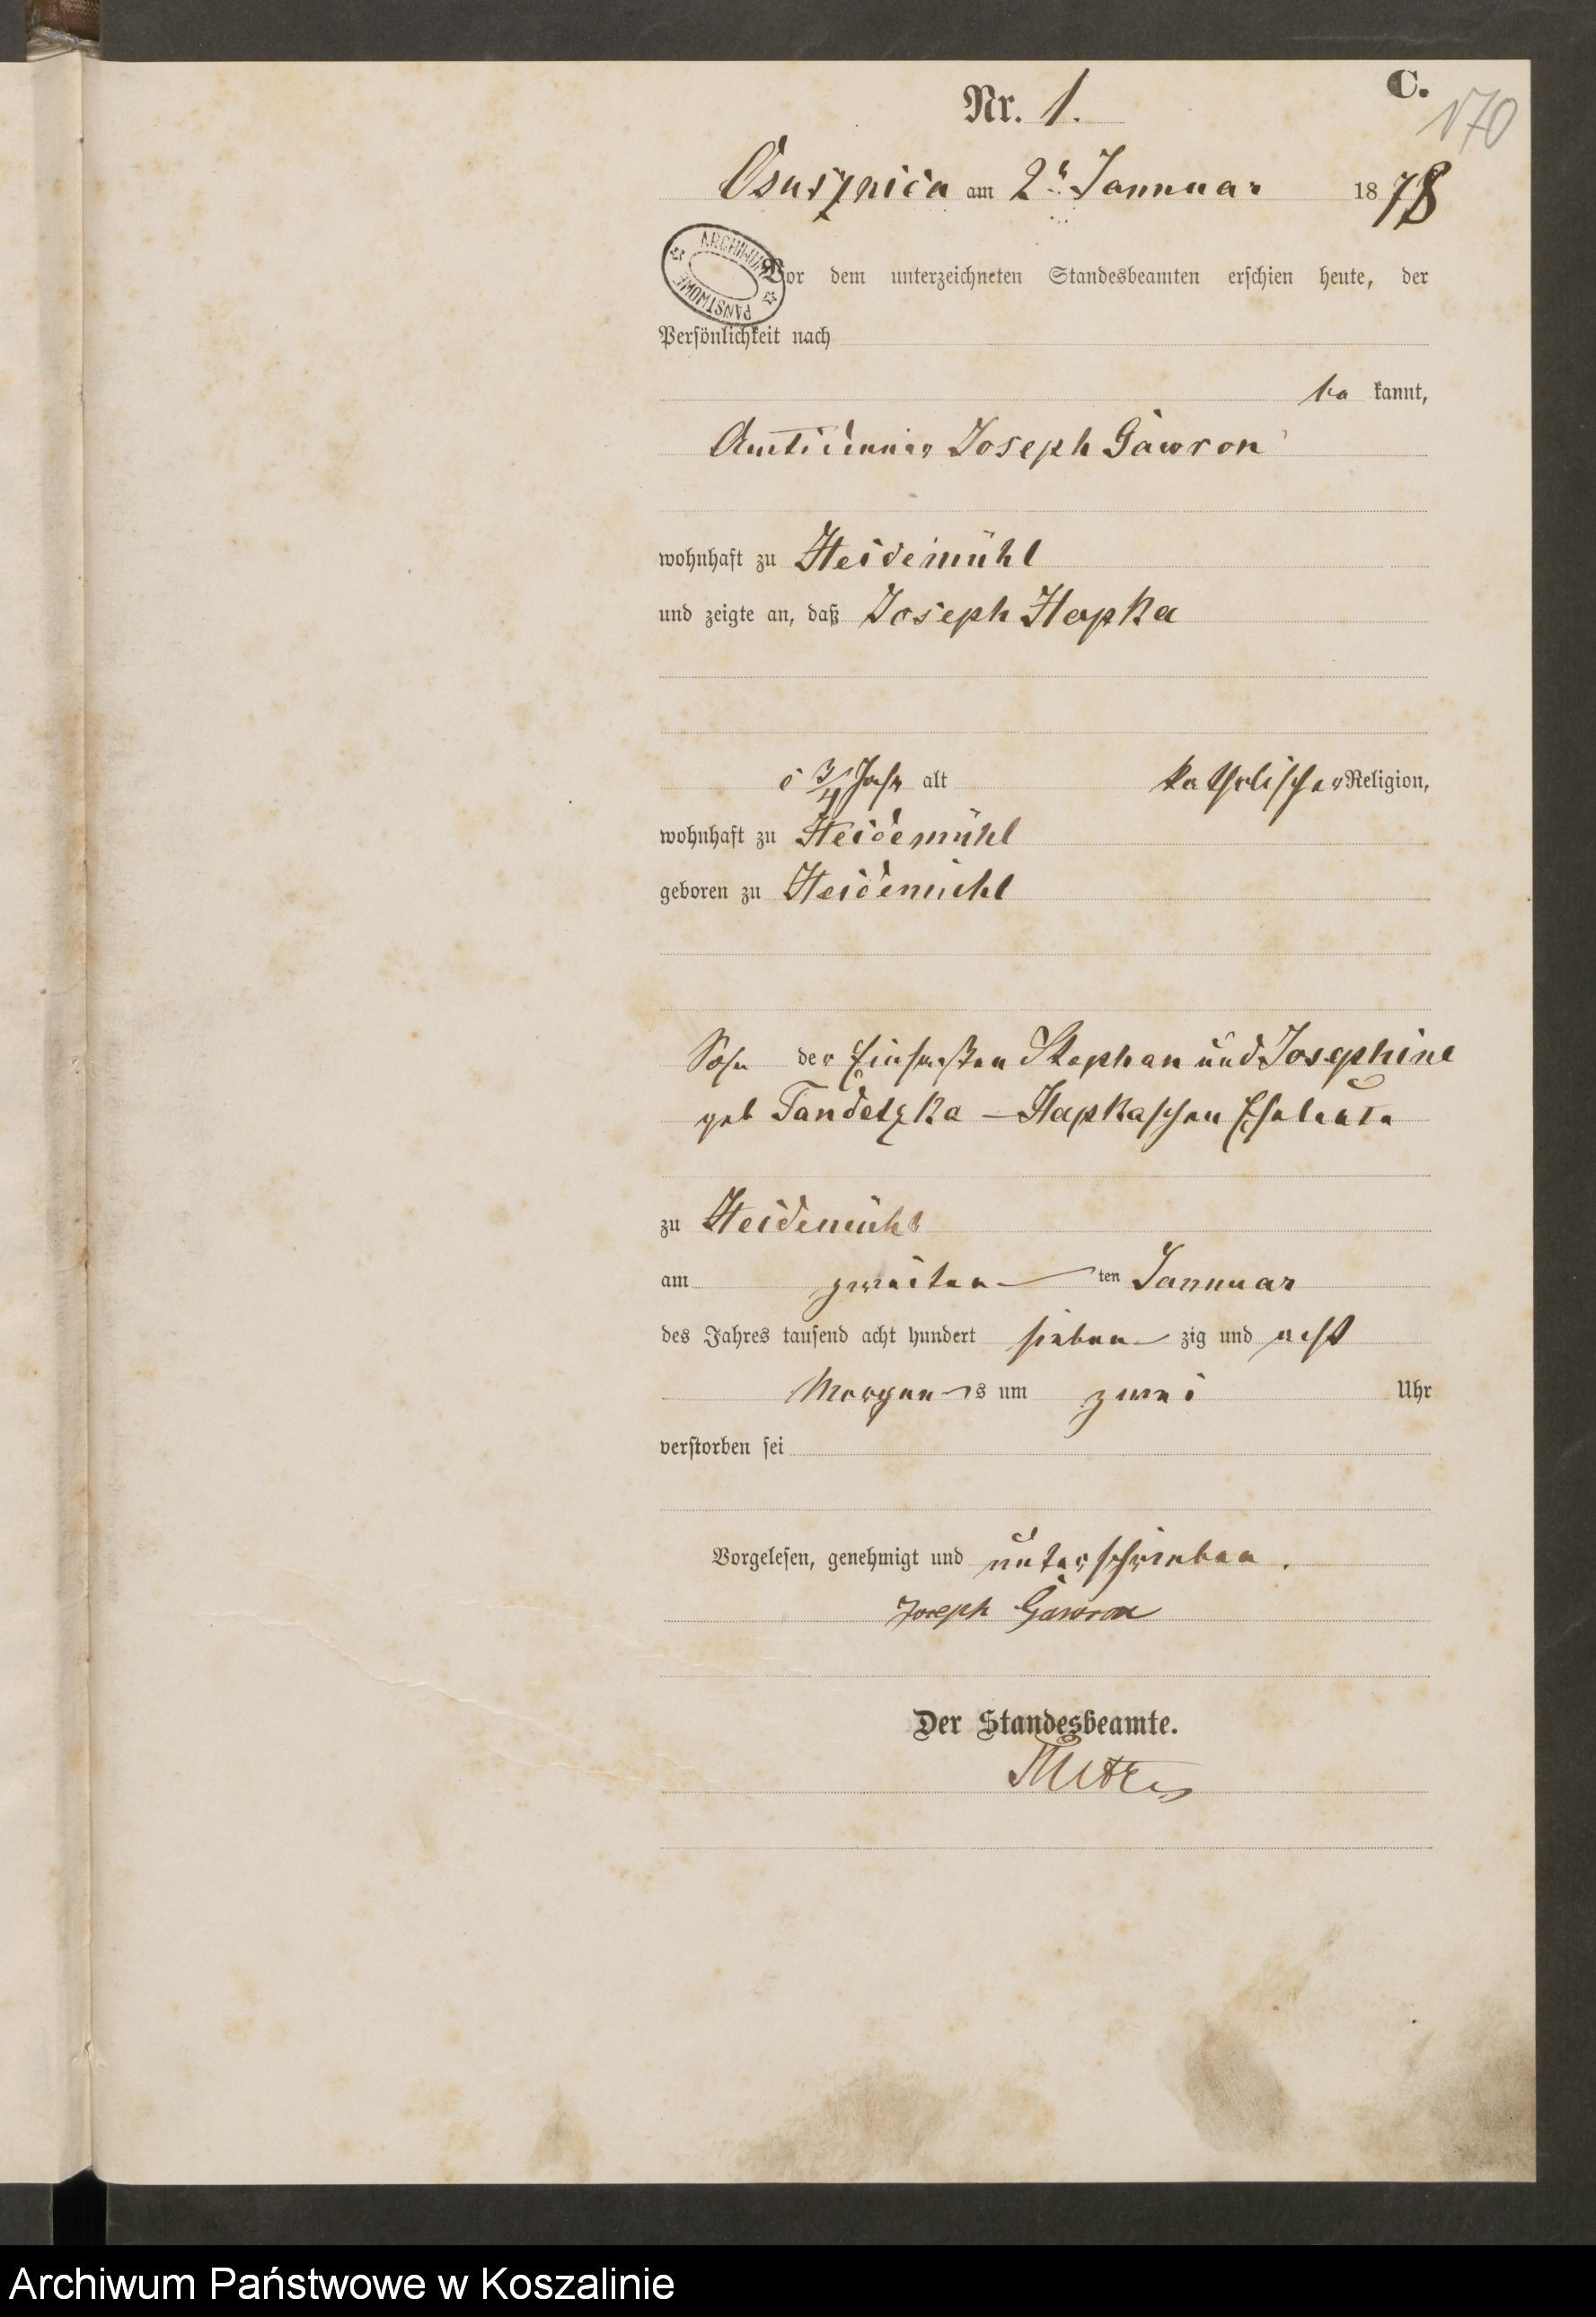 C.
170
Nr. 1.
Osusznica am 2t Jannuar 1878
ARCHIWUM PAŃSTWOWE
Vor dem unterzeichneten Standesbeamten erschien heute, der
Persönlichkeit nach
be kannt,
Amtsdiener Joseph Gawron
wohnhaft zu Heidemühl
und zeigte an, daß Joseph Hapka
3/4 Jahr alt katholischer Religion,
wohnhaft zu Heidemühl
geboren zu Heidemühl
Sohn der Einsassen Stephan und Josephine
geb Tandetzka – Hapkaschen Eheleute
zu Heidemühl
am zweiten ten Jannuar
des Jahres tausend acht hundert sieben zig und acht
Morgen s um zwei Uhr
verstorben sei
Vorgelesen, genehmigt und unterschrieben.
Joseph Gawron
Der Standesbeamte.
Archiwum Państwowe w Koszalinie